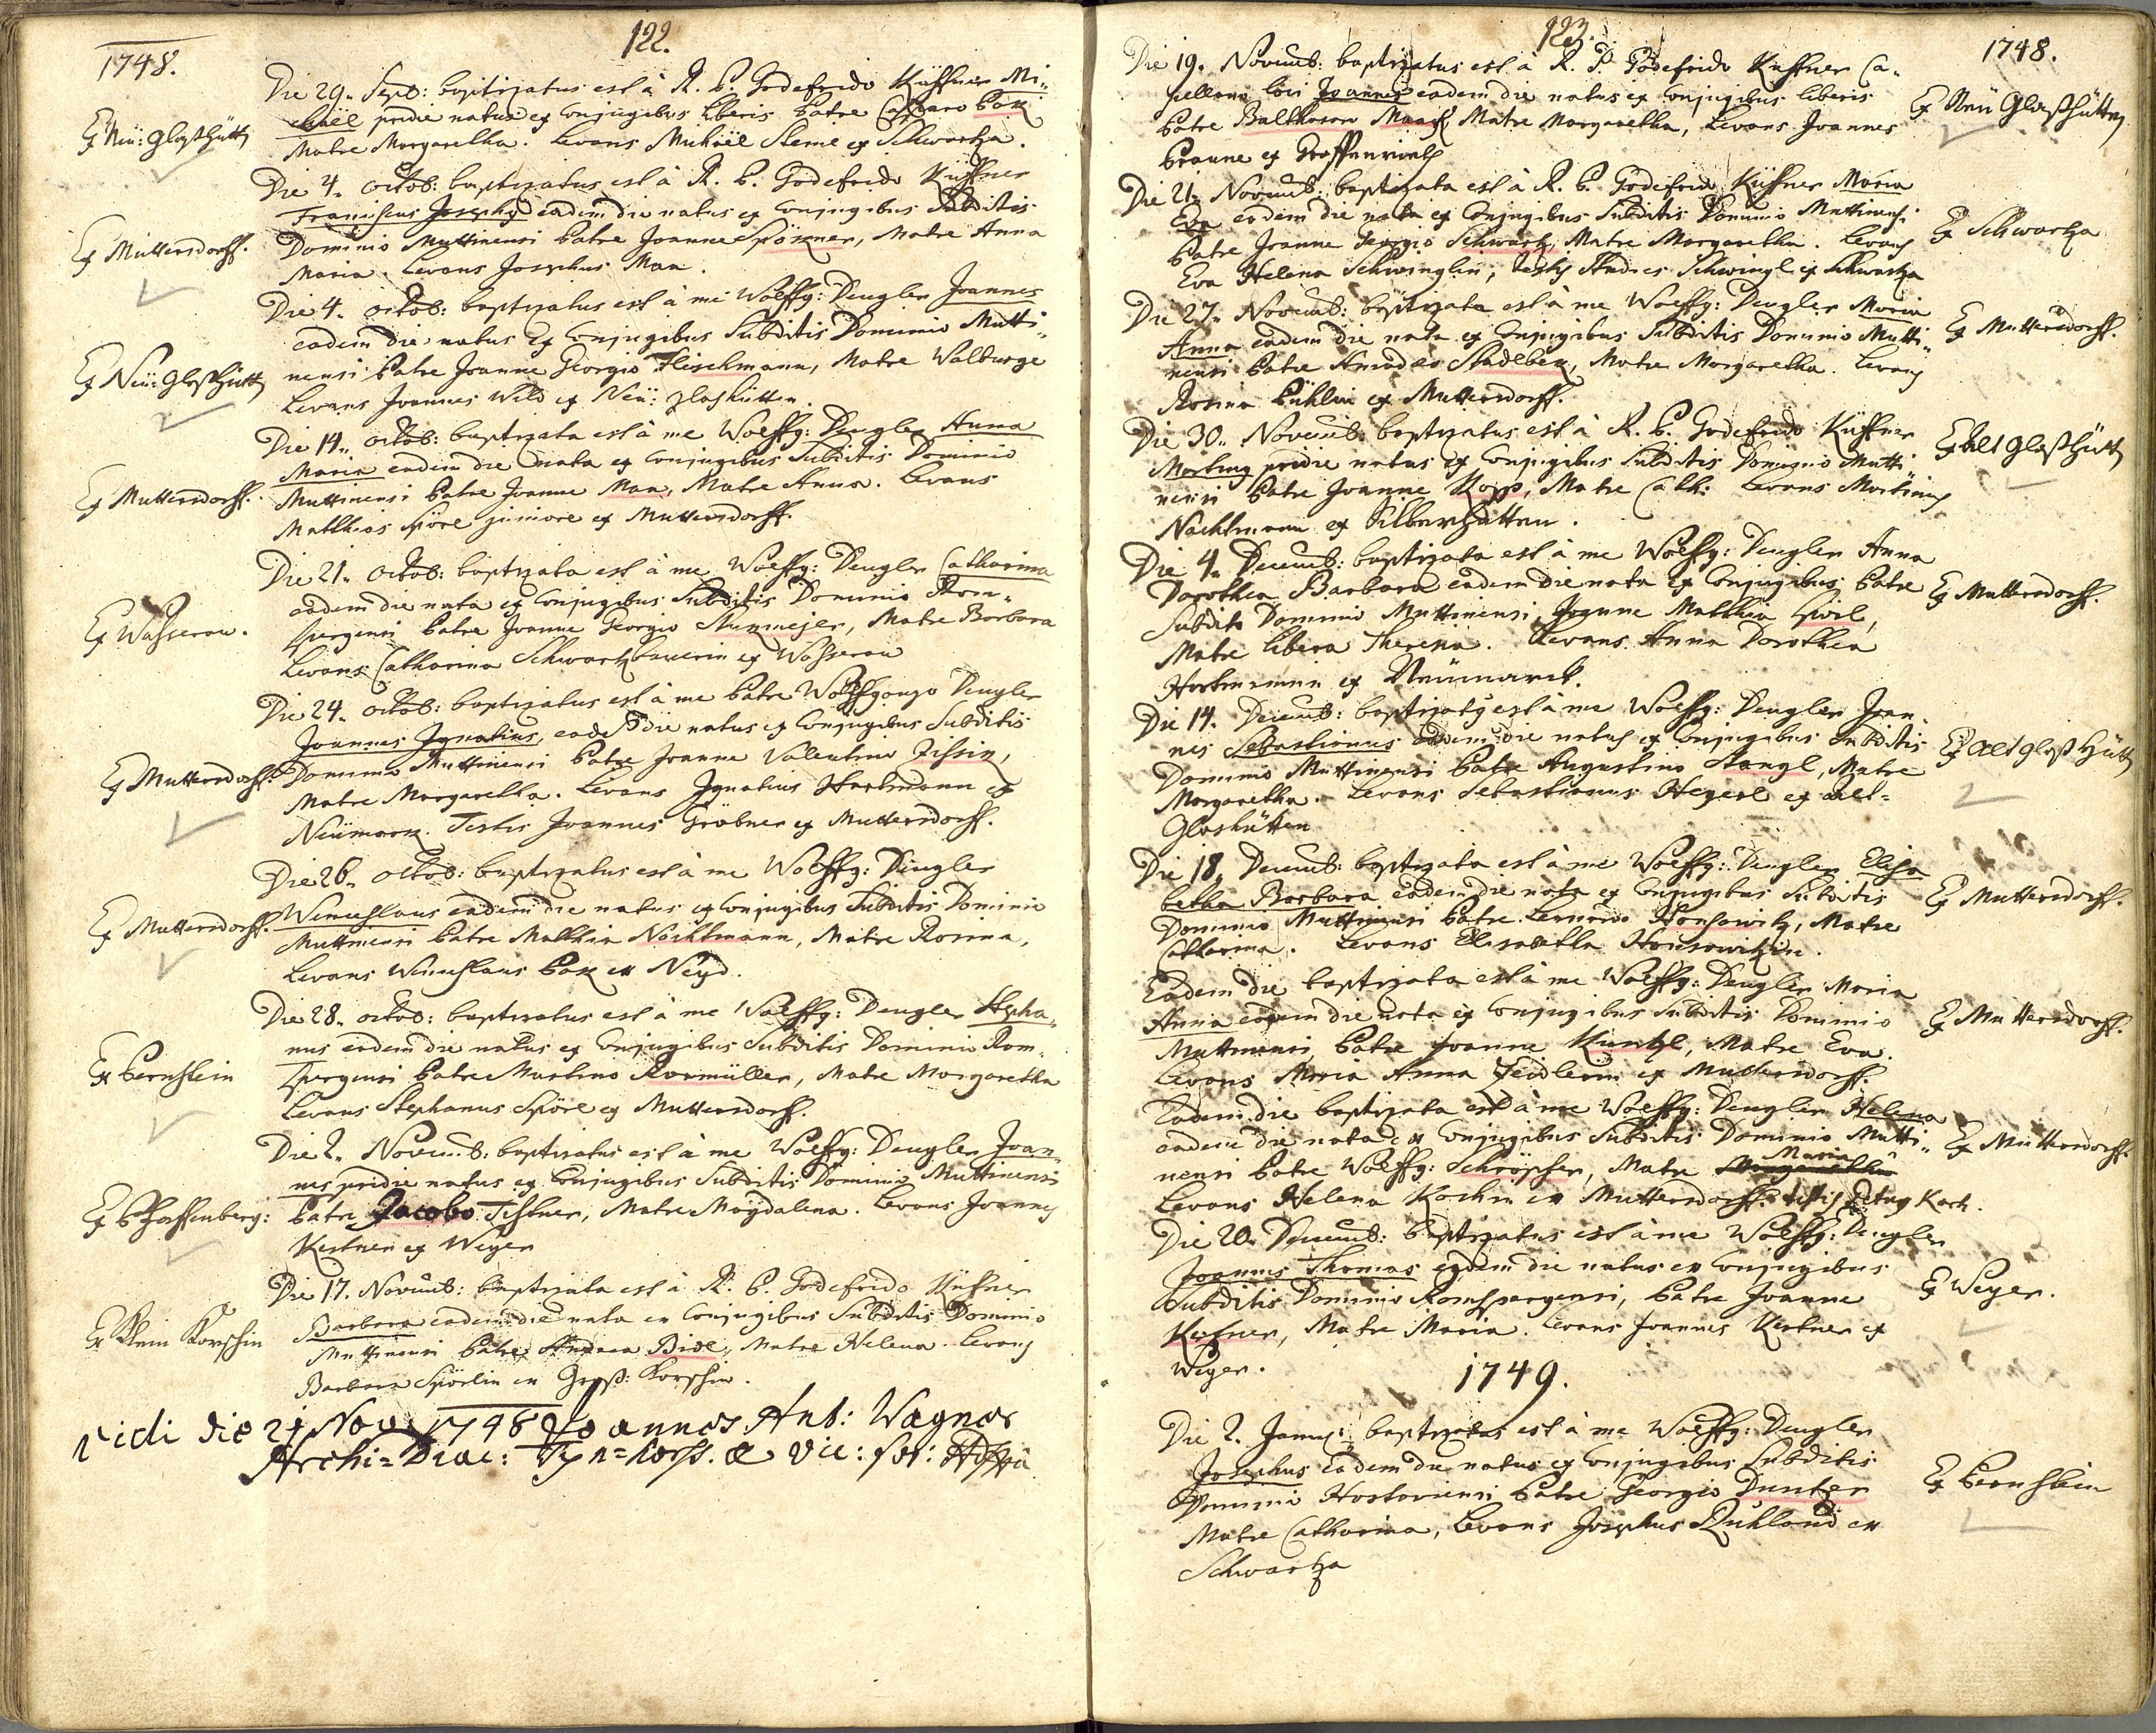 122.
1748.
Die 29. Sept: baptizatus est à R. P. Godefrido Küffner Mi-
chäel pridie natus ex Conjugibus liberis Patre Casparo Pök
Matre Margaretha. Levans Michäel Steinl ex Schwartza.
Ex Neü: Glaßhütt
Die 4. octob: baptizatus est à R. P. Godefrido Küffner
Franciscus Josephus eadem die natus ex Conjugibus Subditis
Dominio Muttinensi Patre Joanne Spörner, Matre Anna
Maria. Levans Josephus Man.
Ex Muttersdorff.
Die 4. octob: baptizatus est à me Wolffg: Dengler Joannes
eadem die natus Ex Conjugibus Subditis Dominio Mutti-
nensi Patre Joanne Georgio Fleischmann, Matre Walburga
Levans Joannes Wild ex Neü: glashütten.
Ex Neü: Glaßhütt
Die 14. octob: baptizata est à me Wolffg: Dengler Anna
Maria eadem die nata ex Conjugibus Subditis Dominio
Muttinensi Patre Joanne Man, Matre Anna. Levans
Matthias Spörl juniore ex Muttersdorff.
Ex Muttersdorff.
Die 21. octob: baptizata est à me Wolffg: Dengler Catharina
eadem die nata ex Conjugibus Subditis Dominio Rom-
spergensi Patre Joanne Georgio Sturmejer, Matre Barbara
Levans Catharina Schwartzbauerin ex Wasserau
Ex Wasserau.
Die 24. octob: baptizatus est à me Patre Wolffgango Dengler
Joannes Ignatius, eadem die natus ex Conjugibus Subditis
Dominio Muttinensi Patre Joanne Valentino Zissin,
Matre Margaretha. Levans Ignatius Hartmann ex
Neümark. Testis Joannes Gröbner ex Muttersdorff.
Ex Muttersdorff.
Die 26. octob: baptizatus est à me Wolffg: Dengler
Wenceslaus eadem die natus ex Conjugibus Subditis Dominio
Muttinensi Patre Matthia Nachtmann, Matre Rosina,
Levans Wenceslaus Pök ex Neyd.
Ex Muttersdorff.
Die 28. octob: baptizatus est à me Wolffg: Dengler Stepha-
nus eadem die natus ex Conjugibus Subditis Dominio Rom-
spergensi Patre Martino Kormüller, Matre Margaretha
Levans Stephanus Spörl ex Muttersdorff.
Ex Bernstein
Die 2. Novemb: baptizatus est à me Wolffg: Dengler Joan-
nes pridie natus ex Conjugibus Subditis Dominio Muttinensi
Patre Jacobo Tistner, Matre Magdalena. Levans Joannes
Kestner ex Weyer
Ex Pfaffenberg:
Die 17. Novemb: baptizata est à R. P. Godefrido Küffner
Barbara eadem die nata ex Conjugibus Subditis Dominio
Muttinensi Patre Andrea Birl, Matre Helena. Levans
Barbara Spörlin ex Groß: Korschin.
Ex Klein Korschin
Vidi die 21 Nov 1748 Joannes Ant: Wagner
Archi=Diac:
123.
1748.
Die 19. Novemb: baptizatus est à R. P. Godefrido Küffner Ca-
pellano loci Joannes eadem die natus ex Conjugibus liberis
Patre Balthasar Maash Matre Margaretha, Levans Joannes
Braune ex Graffenrieth
Ex Neü Glaßhütten
Die 21. Novemb: baptizata est à R. P. Godefrido Küffner Maria
Eva eadem die nata ex Conjugibus Subditis Dominio Muttinensi
Patre Joanne Georgio Schwartz, Matre Margaretha. Levans
Eva Helena Schwinglin, testis Andres Schwingl ex Schwartza
Ex Schwartza
Die 27. Novemb: baptizata est à me Wolffg: Dengler Maria
Anna eadem die nata ex Conjugibus Subditis Dominio Mutti-
nensi Patre Amadeo Stadlber, Matre Margaretha. Levans
Rosina Pühlin ex Muttersdorff.
Ex Muttersdorff.
Die 30. Novemb: baptizatus est à R. P. Godefrido Küffner
Martinus pridie natus ex Conjugibus Subditis Dominio Mutti-
nensi Patre Joanne Kopp, Matre Cath: Levans Martinus
Nachtmann ex Silberhütten.
Ex Alt Glaßhütt
Die 4. Decemb: baptizata est à me Wolffg: Dengler Anna
Dorothea Barbara eadem die nata ex Conjugibus Patre
Subdito Dominio Muttinensi Joanne Matthia Spörl,
Matre libera Theresia. Levans Anna Dorothea
Hartmannin ex Neümarck.
Ex Muttersdorff.
Die 14. Decemb: baptizatus est à me Wolffg: Dengler Joan-
nes Sebastianus eadem die natus ex Conjugibus Subditis
Dominio Muttinensi Patre Augustino Stangl, Matre
Margaretha. Levans Sebastianus Hegerl ex alt-
Glashütten
Ex Alt Glaß Hütt
Die 18. Decemb: baptizata est à me Wolffg: Dengler Elisa
betha Barbara eadem die nata ex Conjugibus Subditis
Dominio Muttinensi Patre Bernardo Honsowitz, Matre
Catharina. Levans Elisabetha Honsowitzin.
Ex Muttersdorff.
Eadem die baptizata est à me Wolffg: Dengler Maria
Anna eadem die nata ex Conjugibus Subditis Dominio
Muttinensi, Patre Joanne Küntzl, Matre Eva.
Levans Maria Anna Zeidlerin ex Muttersdorff.
Ex Muttersdorff.
Eadem die baptizata est à me Wolffg: Dengler Helena
eadem die nata ex Conjugibus Subditis Dominio Mutti-
nensi Patre Wolffg: Schröpfer, Matre Margaretha Maria
Levans Helena Kochin ex Muttersdorff. testis Petrus Koch.
Ex Muttersdorff.
Die 20. Decemb: baptizatus est à me Wolffg: Dengler
Joannes Thomas eadem die natus ex Conjugibus
Subditis Dominio Romspergensi, Patre Joanne
Kestner, Matre Maria. Levans Joannes Kestner ex
Weyer.
Ex Weyer.
1749.
Die 2. Janu: baptizatus est à me Wolffg: Dengler
Josephus eadem die natus ex Conjugibus Subditis
Dominio Hostoviensi Patre Georgio Duntzer
Matre Catharina, Levans Josephus Ruhland ex
Schwartza
Ex Bernstein